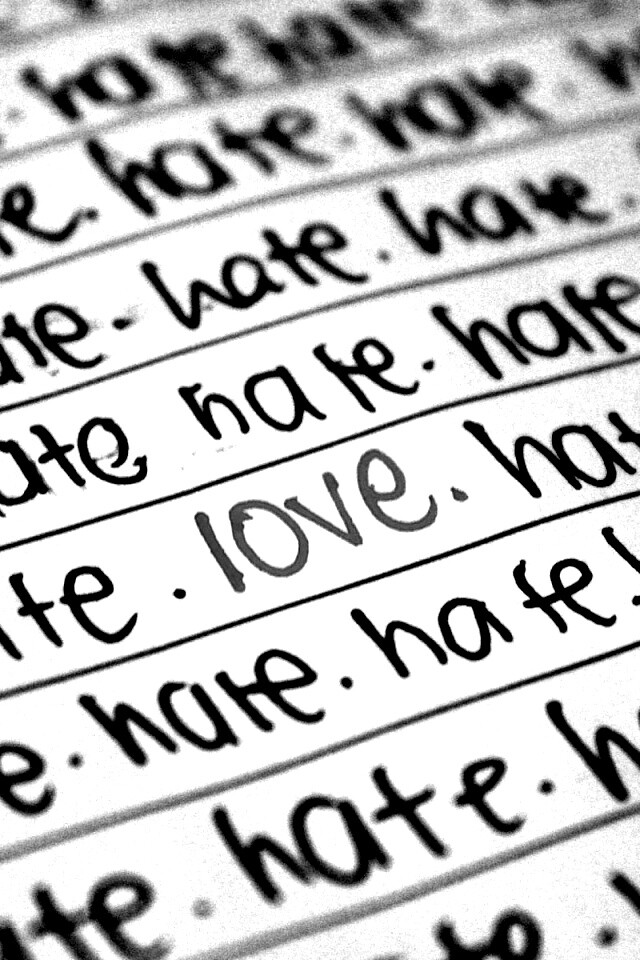 hate hate
e. hate. hate.
te. hate. hate.
ate hate. hate
te. love. hat
e. hate. hate.
ate. hate. h